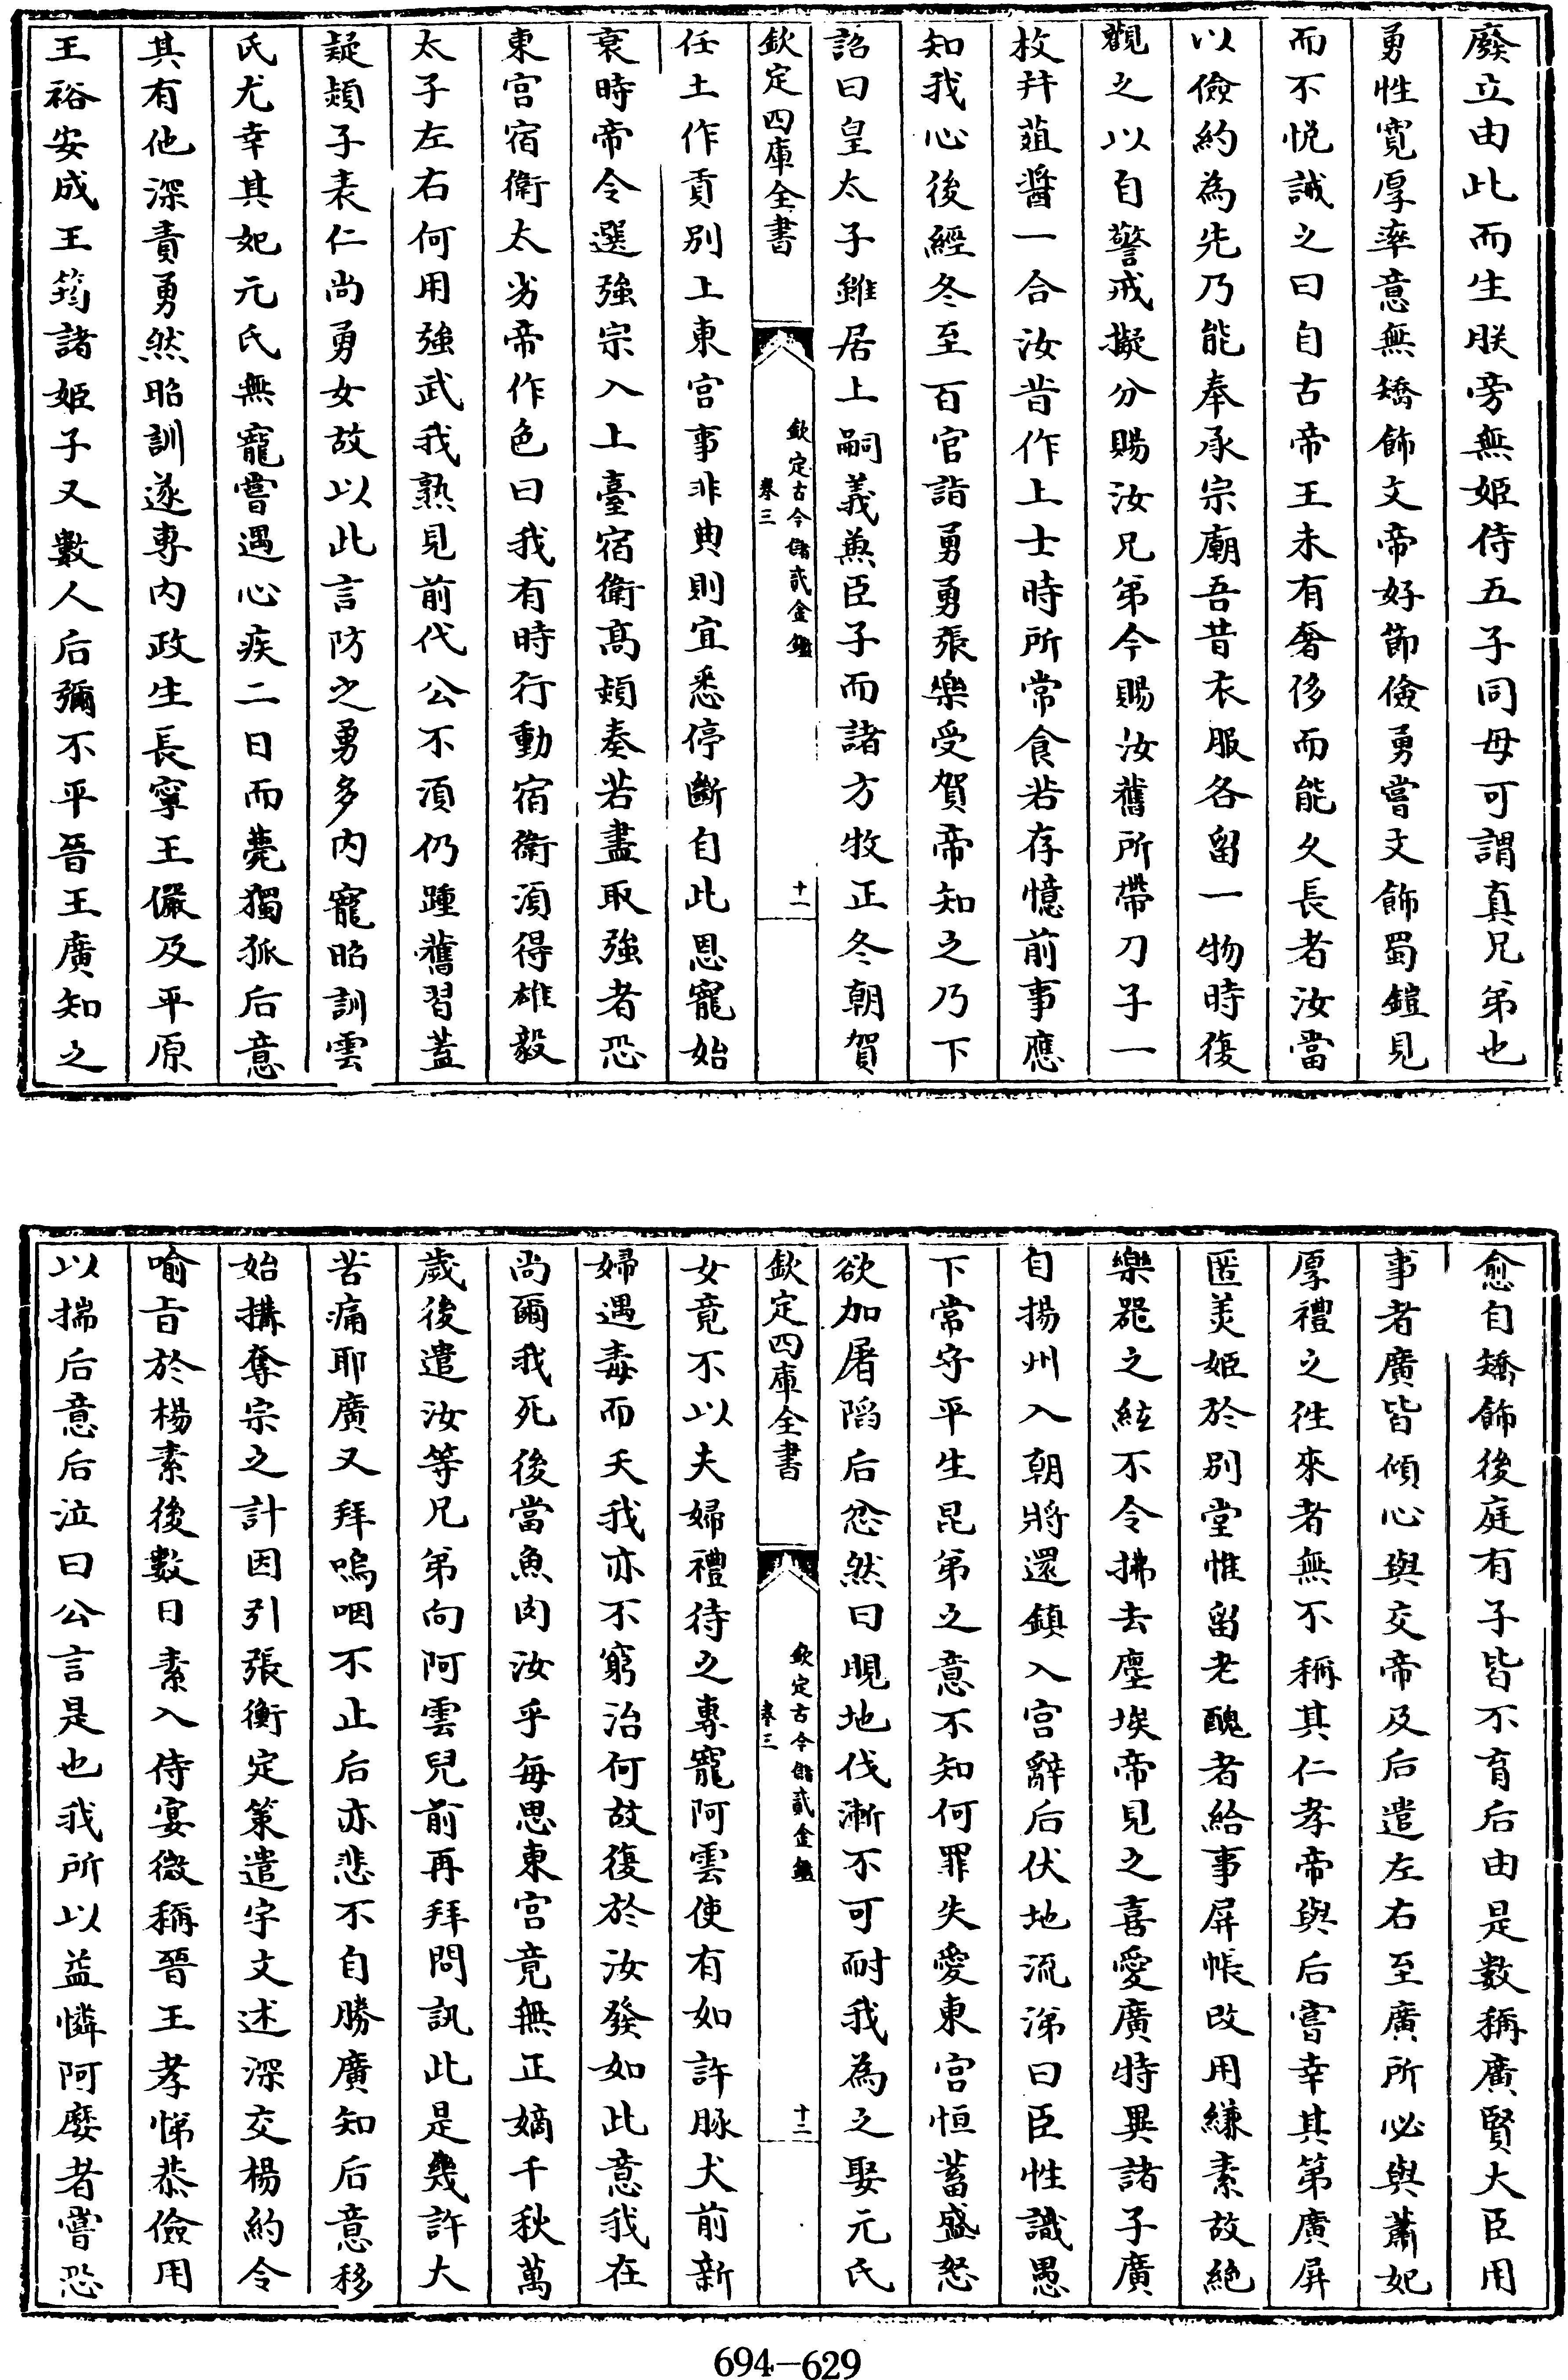 廢立由此而生朕旁無姬侍五子同母可謂真兄弟也
勇性寛厚率意無矯飾文帝好節儉勇嘗文飾蜀鎧見
而不悦誡之曰自古帝王未有奢侈而能久長者汝當
以儉約為先乃能奉承宗廟吾昔衣服各留一物時復
觀之以自警戒擬分賜汝兄弟今賜汝舊所帶刀子一
枚并葅醤一合汝昔作上士時所常食若存憶前事應
知我心後經冬至百官詣勇勇張樂受賀帝知之乃下
詔曰皇太子雖居上嗣義兼臣子而諸方牧正冬朝賀
欽定四庫全書
欽定古今儲貳金鑑
卷三
十一
任土作貢别上東宫事非典則宜悉停斷自此恩寵始
衰時帝令選強宗入上臺宿衛髙熲奏若盡取強者恐
東宫宿衛太劣帝作色曰我有時行動宿衛須得雄毅
太子左右何用強武我熟見前代公不須仍踵舊習蓋
疑熲子表仁尚勇女故以此言防之勇多内寵昭訓雲
氏尤幸其妃元氏無寵嘗遇心疾二日而薨獨孤后意
其有他深責勇然昭訓遂專内政生長寧王儼及平原
王裕安成王筠諸姬子又數人后彌不平晉王廣知之
愈自矯飾後庭有子皆不育后由是數稱廣賢大臣用
事者廣皆傾心與交帝及后遣左右至廣所必與蕭妃
厚禮之徃來者無不稱其仁孝帝與后嘗幸其第廣屏
匿美姬於别堂惟留老醜者給事屏帳改用縑素故絶
樂器之絃不令拂去塵埃帝見之喜愛廣特異諸子廣
自揚州入朝將還鎮入宫辭后伏地流涕曰臣性識愚
下常守平生昆弟之意不知何罪失愛東宫恒蓄盛怒
欲加屠䧟后忿然曰睍地伐漸不可耐我為之娶元氏
欽定四庫全書
欽定古今儲貳金鑑
卷三
十二
女竟不以夫婦禮待之專寵阿雲使有如許豚犬前新
婦遇毒而夭我亦不窮治何故復於汝發如此意我在
尚爾我死後當魚肉汝乎每思東宫竟無正嫡千秋萬
歲後遣汝等兄弟向阿雲兒前再拜問訊此是幾許大
苦痛耶廣又拜嗚咽不止后亦悲不自勝廣知后意移
始搆奪宗之計因引張衡定策遣宇文述深交楊約令
喻㫖於楊素後數日素入侍宴微稱晉王孝悌恭儉用
以揣后意后泣曰公言是也我所以益憐阿㜷者嘗恐
694-629